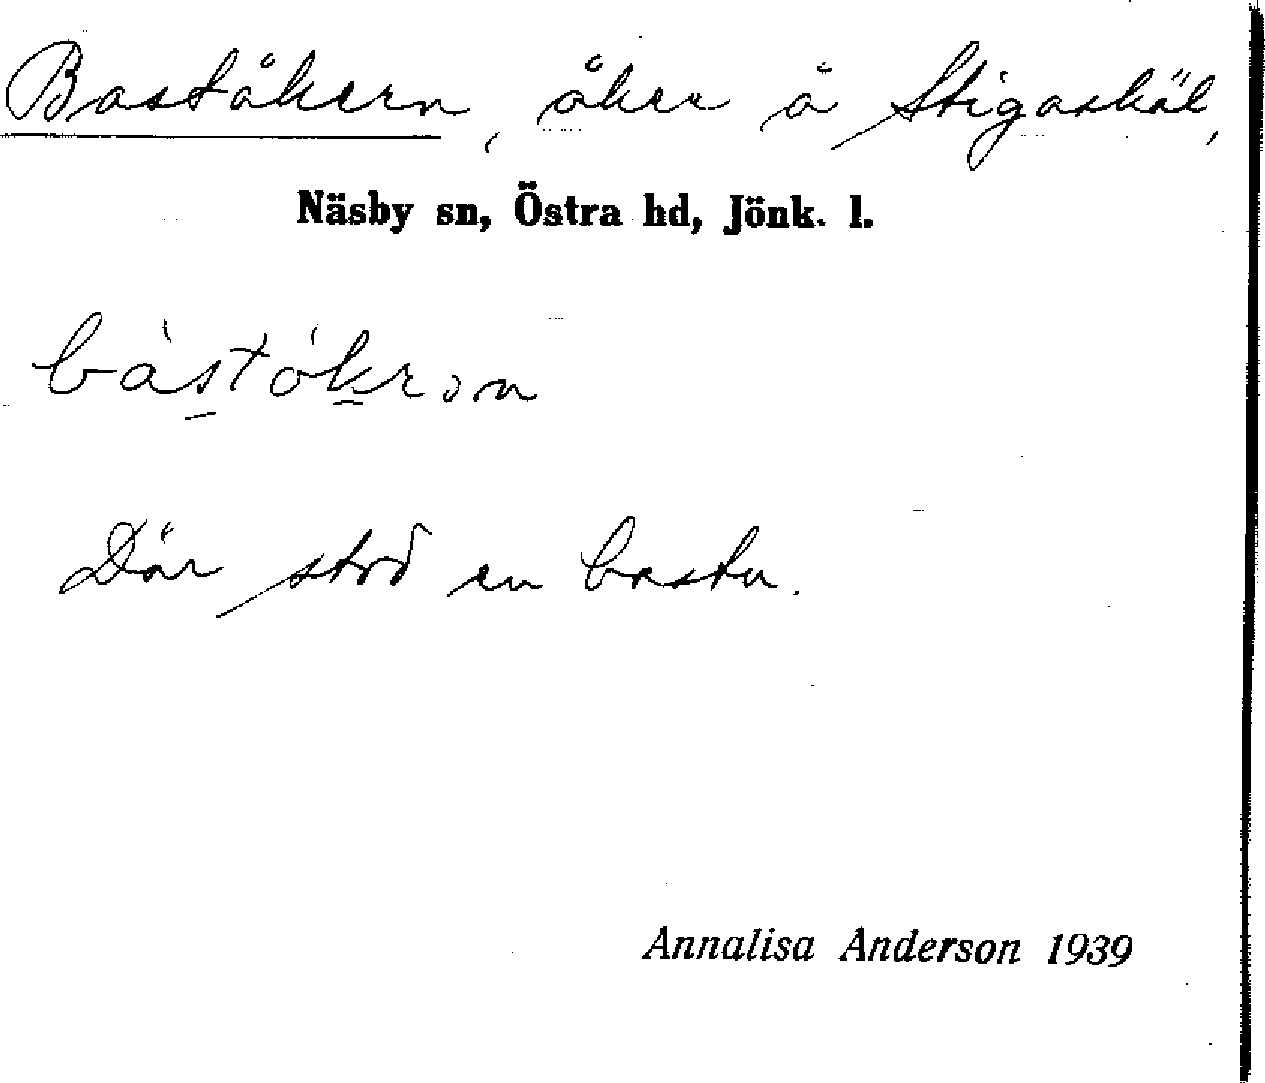 Baståkern, åker å Stigaskäl,
Näsby sn, Östra hd, Jönk. l.
Där stod en bastu.
Annalisa Anderson 1939